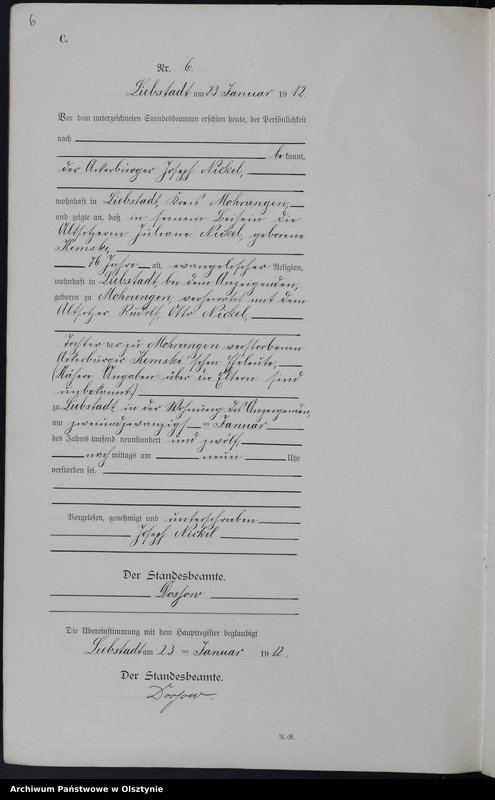 6
C.
Nr. 6.
Liebstadt am 23 Januar 1912.
Vor dem unterzeichneten Standesbeamten erschien heute, der Persönlichkeit
nach
bekannt,
der Ackerbürger Joseph Nickel,
wohnhaft in Liebstadt, Kreis Mohrungen,
und zeigte an, daß in seinem Beisein die
Altsitzerin Juliane Nickel, geborene
Kemski,
76 Jahre alt, evangelischer Religion,
wohnhaft in Liebstadt, bei dem Anzeigenden,
geboren zu Mohrungen, verheiratet mit dem
Altsitzer Rudolf Otto Nickel,
Tochter der zu Mohrungen verstorbenen
Ackerbürger Kemski'schen Eheleute,
(Nähere Angaben über die Eltern sind
unbekannt)
zu Liebstadt, in der Wohnung des Anzeigenden,
am zweiundzwanzigsten Januar
des Jahres tausend neunhundert und zwölf,
nachmittags um neun Uhr
verstorben sei.
Vorgelesen, genehmigt und unterschrieben
Joseph Nickel
Der Standesbeamte.
Die Übereinstimmung mit dem Hauptregister beglaubigt
Liebstadt am 23 ten Januar 1912.
Der Standesbeamte.
N.-R.
Archiwum Państwowe w Olsztynie